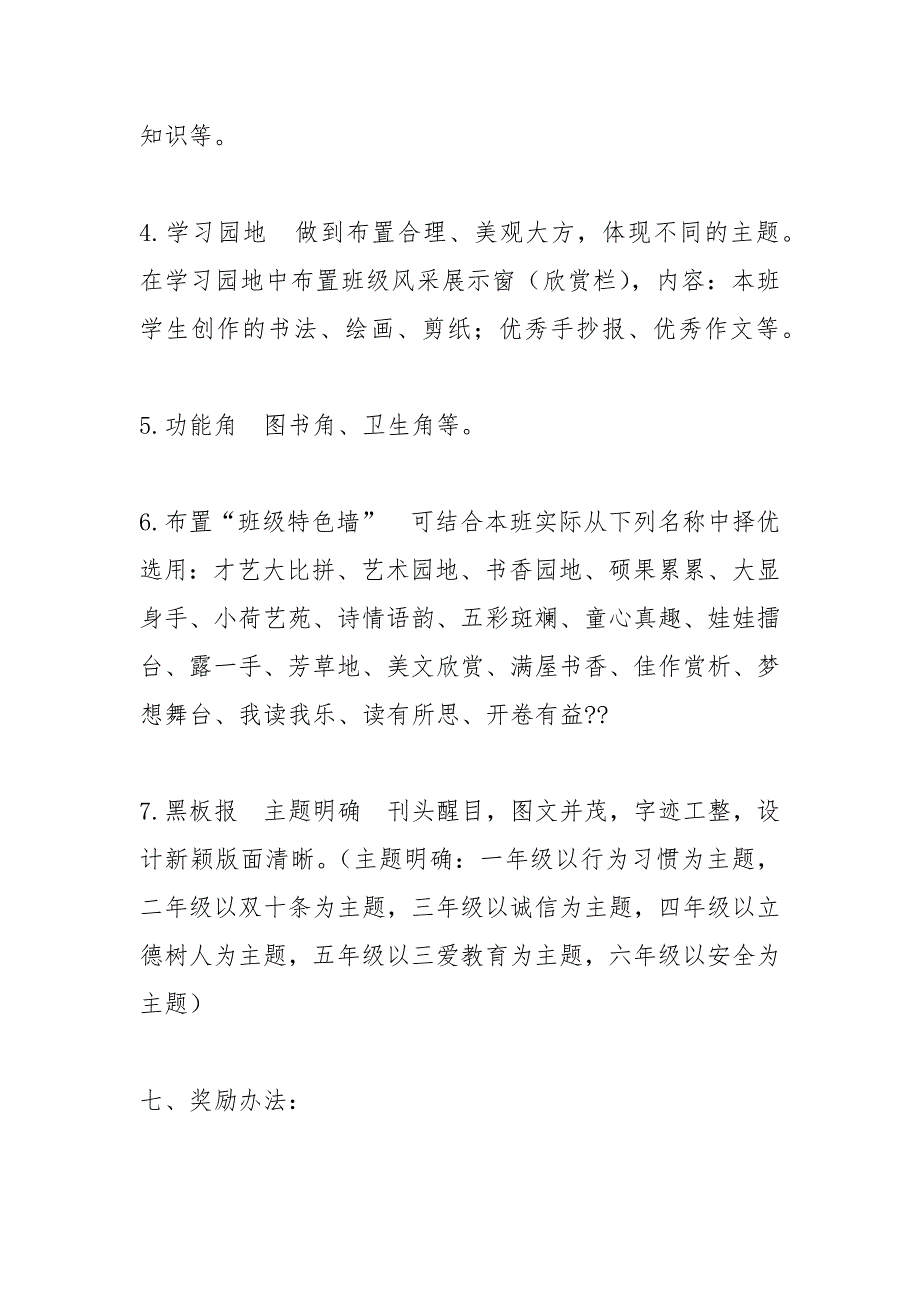 知识等。
4.学习园地　做到布置合理、美观大方，体现不同的主题。
在学习园地中布置班级风采展示窗（欣赏栏），内容：本班
学生创作的书法、绘画、剪纸；优秀手抄报、优秀作文等。
5.功能角　图书角、卫生角等。
6.布置“班级特色墙”　可结合本班实际从下列名称中择优
选用：才艺大比拼、艺术园地、书香园地、硕果累累、大显
身手、小荷艺苑、诗情语韵、五彩斑斓、童心真趣、娃娃擂
台、露一手、芳草地、美文欣赏、满屋书香、佳作赏析、梦
想舞台、我读我乐、读有所思、开卷有益??
7.黑板报　主题明确　刊头醒目，图文并茂，字迹工整，设
计新颖版面清晰。（主题明确：一年级以行为习惯为主题，
二年级以双十条为主题，三年级以诚信为主题，四年级以立
德树人为主题，五年级以三爱教育为主题，六年级以安全为
主题）
七、奖励办法：